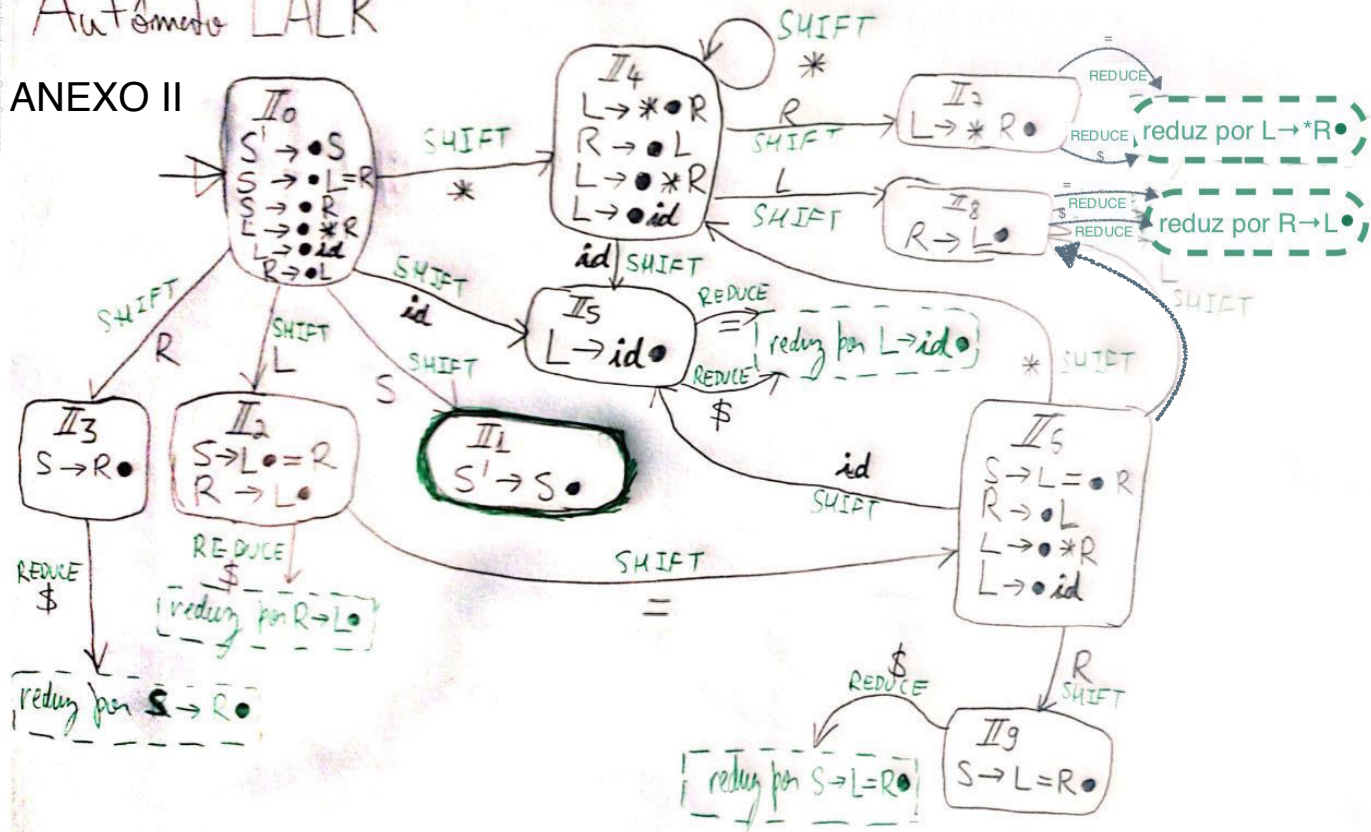 Autômato LALR
ANEXO II
I0
S' → •S
S → •L=R
S → •R
L → •*R
L → •id
R → •L
SHIFT
*
I4
L → *•R
R → •L
L → •*R
L → •id
SHIFT
*
R
SHIFT
I7
L → *R•
=
REDUCE
REDUCE
$
reduz por L→*R•
L
SHIFT
I8
R → L•
=
REDUCE
$
REDUCE
reduz por R→L•
L
SHIFT
SHIFT
id
id
SHIFT
I5
L → id•
REDUCE
=
REDUCE
$
reduz por L→id•
SHIFT
R
SHIFT
L
SHIFT
S
*
SHIFT
I3
S → R•
I2
S→L•=R
R → L•
I1
S' → S•
id
SHIFT
I6
S → L=•R
R → •L
L → •*R
L → •id
REDUCE
$
REDUCE
$
reduz por R→L•
SHIFT
=
reduz por S → R•
R
SHIFT
$
REDUCE
reduz por S→L=R•
I9
S → L=R•